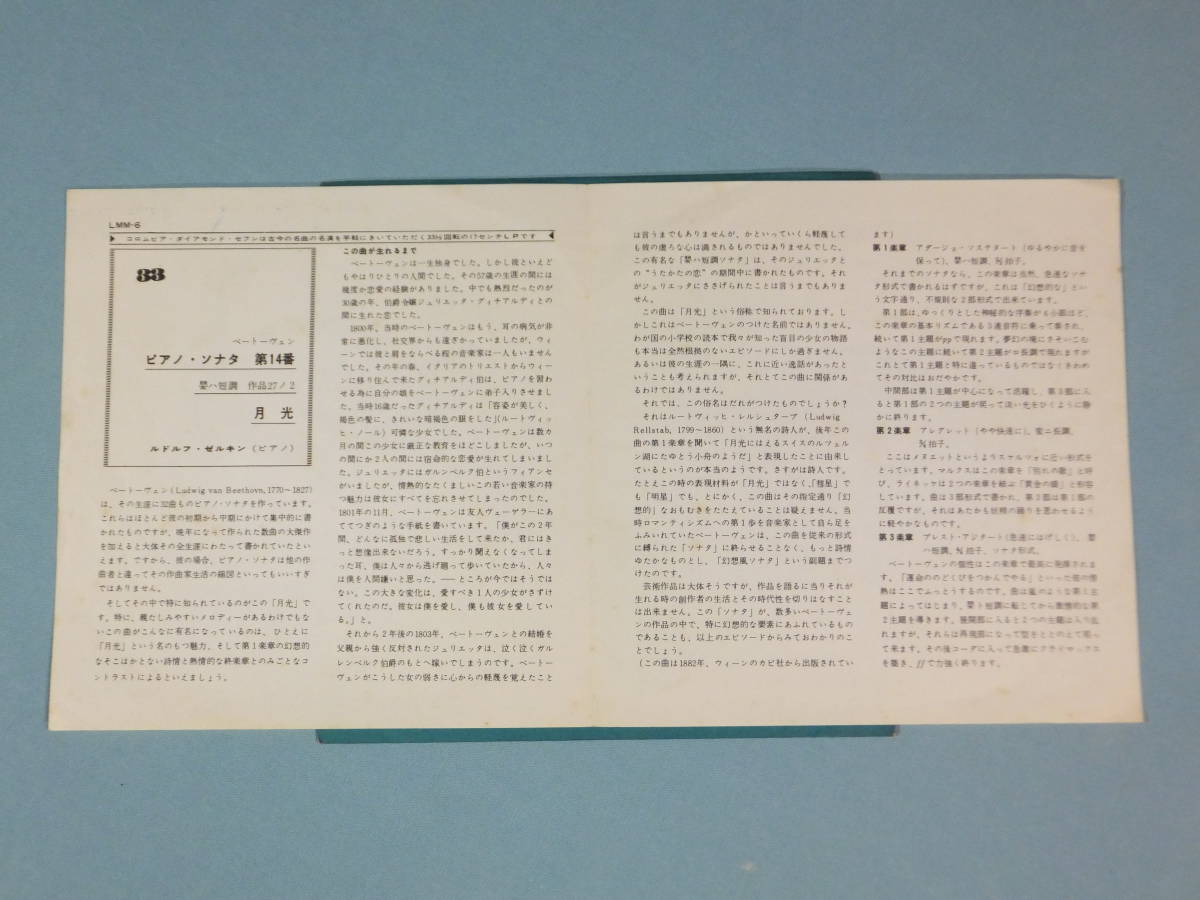 LMM-6
コロムビア・ダイアモンド・セブンは古今の名曲の名演を手軽にきいていただく33⅓回転の17センチLPです
33
ベートーヴェン
ピアノ・ソナタ 第14番
嬰ハ短調 作品27ノ2
月光
ルドルフ・ゼルキン (ピアノ)
ベートーヴェン(Ludwig van Beethovn, 1770〜1827)
は、その生涯に32曲ものピアノ・ソナタを作っています。
これらはほとんど彼の初期から中期にかけて集中的に書
かれたものですが、晩年になって作られた数曲の大傑作
を加えると大体その全生涯にわたって書かれていたとい
えます。ですから、彼の場合、ピアノ・ソナタは他の作
曲者と違ってその作曲家生活の縮図といってもいいすぎ
ではありません。
そしてその中で特に知られているのがこの「月光」で
す。特に、親たしみやすいメロディーがあるわけでもな
いこの曲がこんなに有名になっているのは、ひとえに
「月光」という名のもつ魅力、そして第1楽章の幻想的
なそこはかとない詩情と熱情的な終楽章とのみごとなコ
ントラストによるといえましょう。
この曲が生れるまで
ベートーヴェンは一生独身でした。しかし彼といえど
もやはりひとりの人間でした。その57歳の生涯の間には
幾度か恋愛の経験がありました。中でも熱烈だったのが
30歳の年、伯爵令嬢ジュリエッタ・グィチアルディとの
間に生れた恋でした。
1800年。当時のベートーヴェンはもう、耳の病気が非
常に悪化し、社交界からも遠ざかっていましたが、ウィ
ーンでは彼と肩をならべる程の音楽家は一人もいません
でした。その年の春、イタリアのトリエストからウィー
ンに移り住んで来たグィチアルディ伯は、ピアノを習わ
せる為に自分の娘をベートーヴェンに弟子入りさせまし
た。当時16歳だったグィチアルディは「容姿が美しく、
褐色の髪に、きれいな暗褐色の眼をした」(ルートヴィッ
ヒ・ノール) 可憐な少女でした。ベートーヴェンは数カ
月の間この少女に厳正な教育をほどこしましたが、いつ
の間にか2人の間には宿命的な恋愛が生れてしまいまし
た。ジュリエッタにはガルンベルク伯というフィアンセ
がいましたが、情熱的なたくましいこの若い音楽家の持
つ魅力は彼女にすべてを忘れさせてしまったのでした。
1801年の11月、ベートーヴェンは友人ヴェーゲラーにあ
ててつぎのような手紙を書いています。「僕がこの2年
間、どんなに孤独で悲しい生活をして来たか、君にはき
っと想像出来ないだろう。すっかり聞えなくなってしま
った耳。僕は人々から逃げ廻って歩いていたから、人々
は僕を人間嫌いと思った。――ところが今ではそうでは
ない。この大きな変化は、愛すべき1人の少女がさずけ
てくれたのだ。彼女は僕を愛し、僕も彼女を愛してい
る。」と。
それから2年後の1803年、ベートーヴェンとの結婚を
父親から強く反対されたジュリエッタは、泣く泣くガル
レンベルク伯爵のもとへ嫁いでしまうのです。ベートー
ヴェンがこうした女の弱さに心からの軽蔑を覚えたこと
は言うまでもありませんが、かといっていくら軽蔑して
も彼の虚ろな心は満されるものではありませんでした。
この有名な「嬰ハ短調ソナタ」は、そのジュリエッタと
の“うたかたの恋”の期間中に書かれたものです。それ
がジュリエッタにささげられたことは言うまでもありま
せん。
この曲は「月光」という俗称で知られております。し
かしこれはベートーヴェンのつけた名前ではありません。
わが国の小学校の読本で我々が知った盲目の少女の物語
も本当は全然根拠のないエピソードにしか過ぎません。
あるいは彼の生涯の一隅に、これに近い逸話があったと
いうことも考えられますが、それとてこの曲に関係があ
るわけではありません。
それでは、この俗名はだれがつけたものでしょうか?
それはルートヴィッヒ・レルシュターブ (Ludwig
Rellstab, 1799〜1860) という無名の詩人が、後年この
曲の第1楽章を聞いて「月光にはえるスイスのルツェル
ン湖にたゆとう小舟のようだ」と表現したことに由来し
ているというのが本当のようです。さすがは詩人です。
たとえこの時の表現材料が「月光」ではなく、「彗星」で
も「明星」でも、とにかく、この曲はその指定通り「幻
想的」なおもむきをたたえていることは疑えません。当
時ロマンティシズムへの第1歩を音楽家として自ら足を
ふみいれていたベートーヴェンは、この曲を従来の形式
に縛られた「ソナタ」に終らせることなく、もっと詩情
ゆたかなものとし、「幻想風ソナタ」という副題までつ
けたのです。
芸術作品は大体そうですが、作品を語るに当りそれが
生れる時の創作者の生活とその時代性を切りはなすこと
は出来ません。この「ソナタ」が、数多いベートーヴェ
ンの作品の中で、特に幻想的な要素にあふれているもの
であることも、以上のエピソードからみておわかりのこ
とでしょう。
(この曲は1882年、ウィーンのカピ社から出版されてい
ます)
第1楽章 アダージョ・ソステヌート (ゆるやかに音を
保って)、嬰ハ短調、拍子。
それまでのソナタなら、この楽章は当然、急速なソナ
タ形式で書かれるはずですが、これは「幻想的な」とい
う文字通り、不規則な2部形式で出来ています。
第1部は、ゆっくりとした神秘的な序奏が4小節ほど、
この楽章の基本リズムである3連音符に乗って奏され、
続いて第1主題がppで現れます。夢幻の境にさそいこむ
ようなこの主題に続いて第2主題がロ長調で現れますが
これとて第1主題と特に違っているものではなくきわめ
てその対比はおだやかです。
中間部は第1主題が中心になって活躍し、第3部に入
ると第1部の2つの主題が戻って淡い光をひくように静
かに終ります。
第2楽章 アレグレット (やや快速に)、変ニ長調、
拍子。
ここはメヌエットというよりスケルツォに近い形式を
とっています。マルクスはこの楽章を「別れの歌」と呼
び、ライネッケは2つの楽章を結ぶ「黄金の橋」と形容
しています。曲は3部形式で書かれ、第3部は第1部の
反覆ですが、それはあたかも妖精の踊りを思わせるよう
に軽やかなものです。
第3楽章 プレスト・アジタート (急速にはげしく)、嬰
ハ短調、拍子、ソナタ形式。
ベートーヴェンの個性はこの楽章で最高に発揮されま
す。「運命ののどくびをつかんでやる」といった彼の情
熱はここでふっとうするのです。曲は嵐のような第1主
題によってはじまり、嬰ト短調に転じてから激情的な第
2主題を導きます。展開部に入ると2つの主題は入り乱
れますが、それらは再現部になって型をととのえて戻っ
て来ます。その後コーダに入って急激にクライマックス
を築き、ffで力強く終ります。